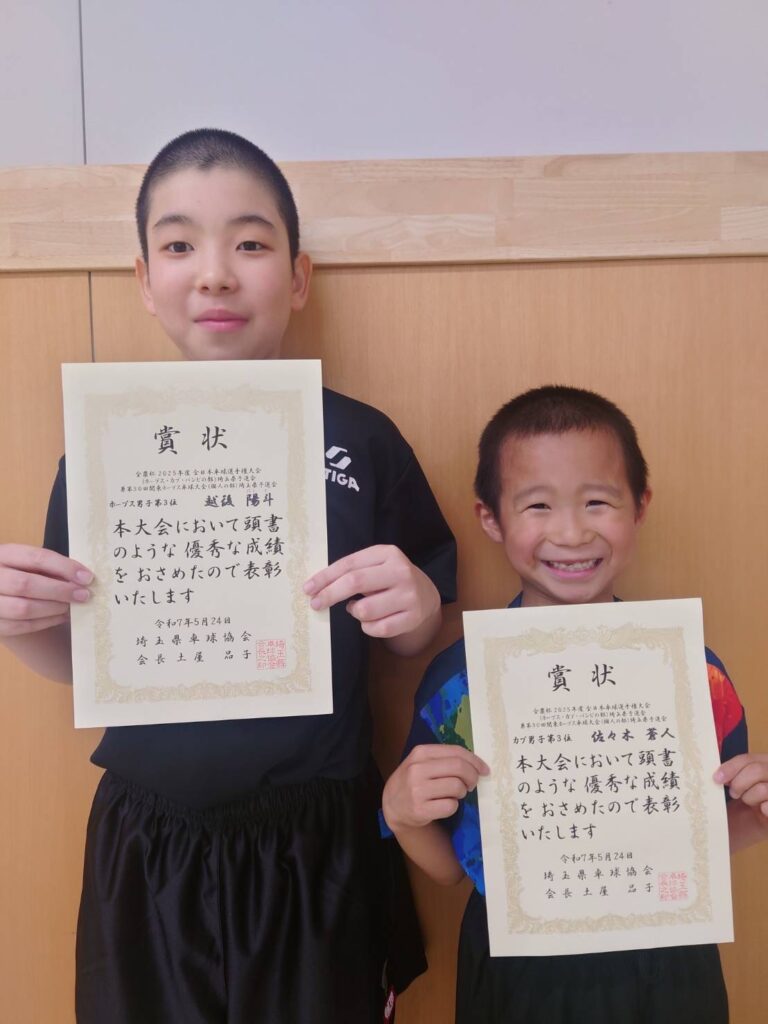 賞状
会長杯 2025年度 全日本卓球選手権大会
(ホープス・カブ・バンビの部)埼玉県予選会
兼第30回関東ホープス卓球大会(個人の部)埼玉県予選会
ホープス男子第3位 越後 陽斗
本大会において頭書
のような優秀な成績
をおさめたので表彰
いたします
令和7年5月24日
埼玉県卓球協会
会長 土屋 品子
STIGA
賞状
2025年度 全日本卓球選手権大会
(ホープス・カブ・バンビの部)埼玉県予選会
兼第30回関東ホープス卓球大会(個人の部)埼玉県予選会
カブ男子第3位 佐々木 蒼人
本大会において頭書
のような優秀な成績
をおさめたので表彰
いたします
令和7年5月24日
埼玉県卓球協会
会長 土屋 品子